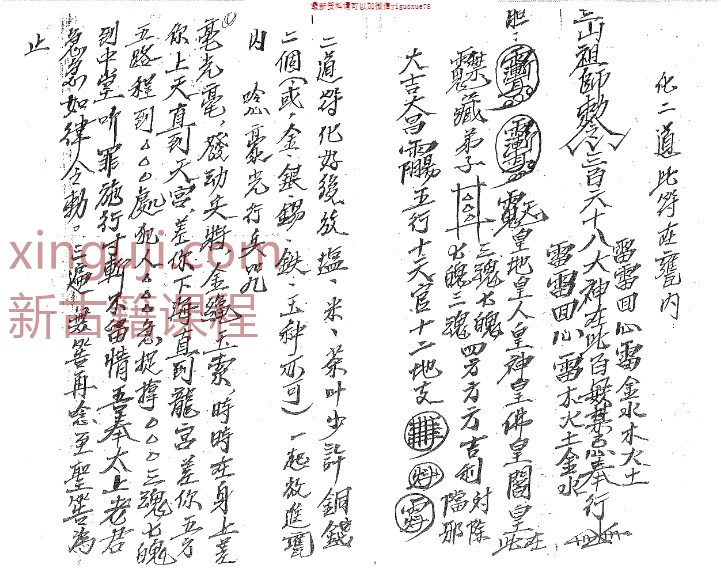 最新资料请可以加微信yiguoxue78
化二道此符在甕内
雷雷回心雷金水木火土
山祖师勅令三百六十八大神在此百無禁忌奉行
雷雷回心雷木火土金水
天皇地皇人皇神皇佛皇閻皇在此
藏弟子
三魂七魄
七魄三魂
四方方方吉利
除
擋邪
大吉大昌
五行十天官十二地支
二道符化好後放塩、米、茶叶少許銅錢
二個(或、金、銀、錫、鉄、五种亦可)一起放進甕
内 唸毫光行兵咒
毫光毫,發动兵將,金繩玉索,時時在身上差
你上天直到天宫,差你下海直到龍宫差你五方
五路程到○○○處犯人○○○急捉擋○○○三魂七魄
到中堂听罪施行,斬不留情,吾奉太上老君
急急如律令勅。三遍
再唸至聖筶為
止
xinguji.com
新古籍课程